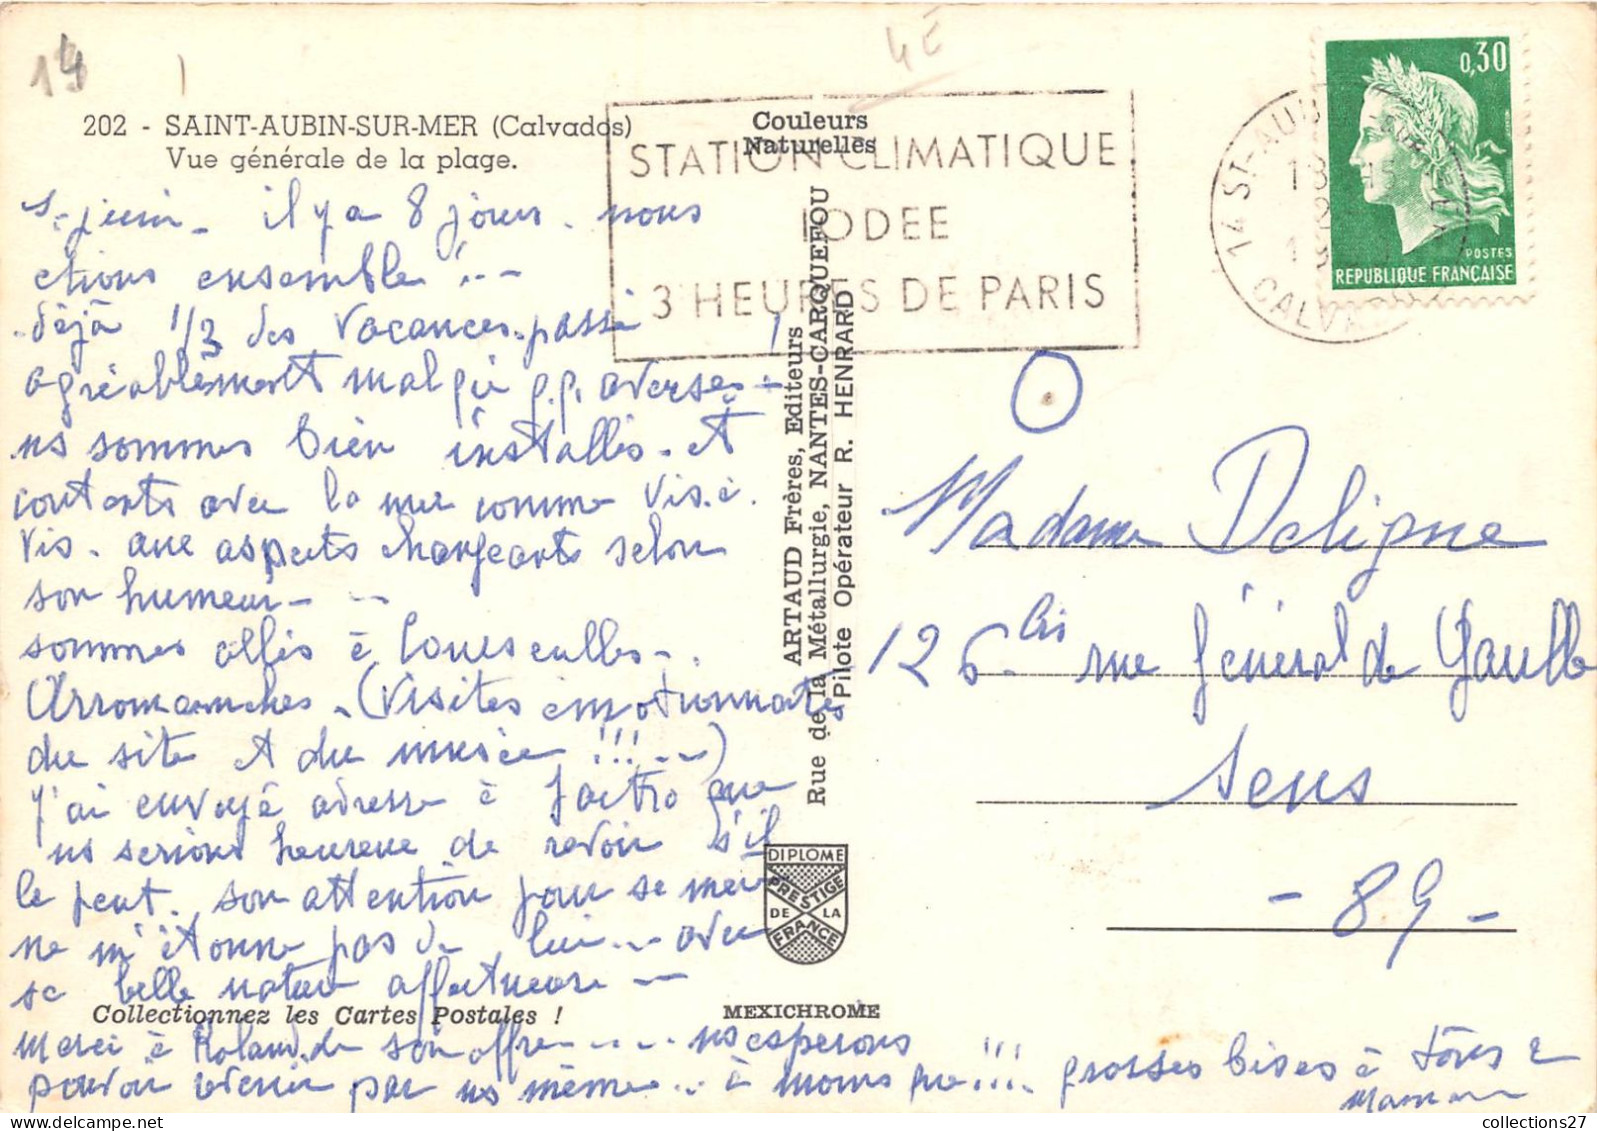 14
4E
202 - SAINT-AUBIN-SUR-MER (Calvados)
Vue générale de la plage.
Couleurs
Naturelles
STATION CLIMATIQUE
IODEE
3 HEURES DE PARIS
14 ST-AUBIN
CALVADOS
0,30
POSTES
REPUBLIQUE FRANÇAISE
juin - il y a 8 jours - nous
étions ensemble !--
déjà 1/3 des vacances passé
agréablement malgré q.q. averses -
ns sommes bien installés - et
contents avec la mer comme vis à
vis - aux aspects changeants selon
son humeur - -
sommes allés à Courseulles -.
Arromanches - (visites émotionnantes
du site et du musée !!! --)
J'ai envoyé adresse à que
ns serions heureux de revoir s'il
le peut. son attention pour
ne m'étonne pas de lui -- avec
sa belle nature affectueuse -
Merci à Roland de son offre ---- ns espérons
pouvoir venir par ns même -- à moins que !!! grosses bises à tous 2
Maman
ARTAUD Frères, Editeurs
Rue de la Métallurgie, NANTES-CARQUEFOU
Pilote Opérateur R. HENRARD
Madame Deligne
126 bis rue Général de Gaulle
Sens
- 89 -
DIPLOME
PRESTIGE
DE LA
FRANCE
Collectionnez les Cartes Postales !
MEXICHROME
collections27